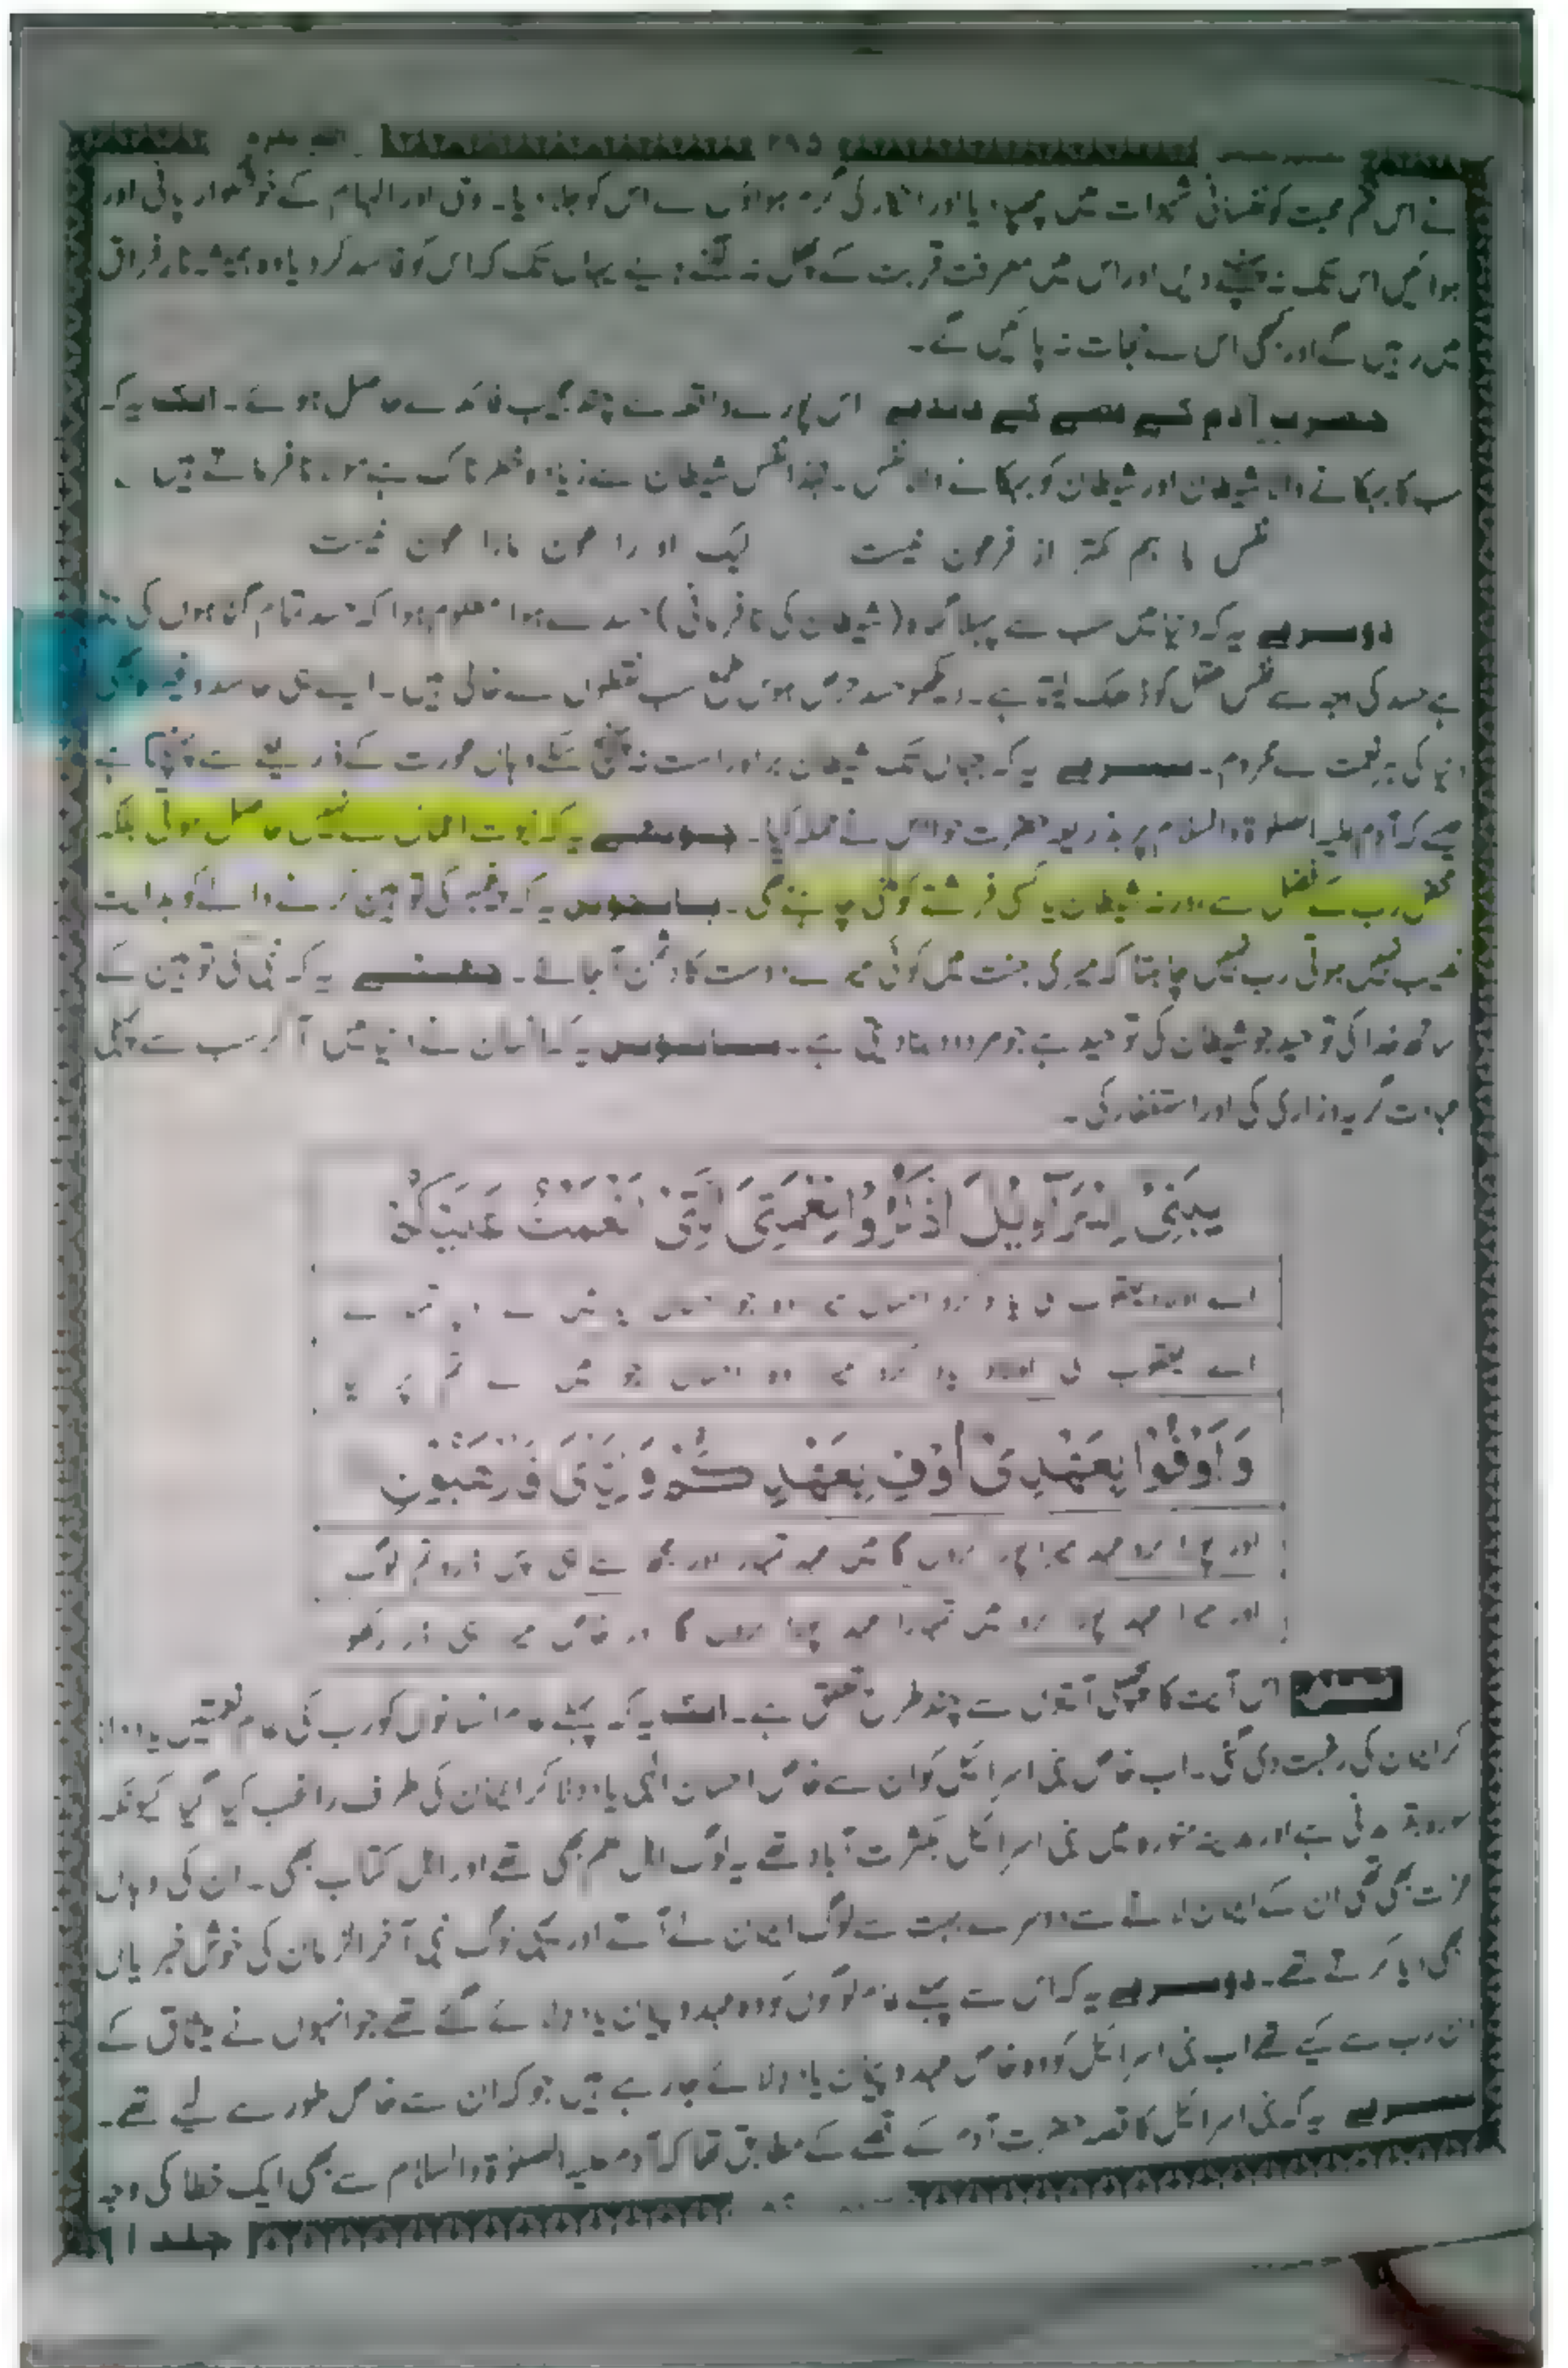 ۲۹۵
نے اس تخم محبت کو نفسانی شہوات میں چھپا دیا اور انکار کی گرم ہواؤں سے اس کو جلا دیا۔ وحی اور الہام کے خوشگوار پانی اور
ہوائیں اس تک نہ پہنچنے دیں اور اس میں معرفت قربت کے پھل نہ لگنے دیئے یہاں تک کہ اس کو فاسد کر دیا وہ ہمیشہ نار فراق
میں رہیں گے اور کبھی اس سے نجات نہ پائیں گے۔
حضرت آدم کے قصے کے فائدے اس پورے واقعہ سے چند عجیب فائدے حاصل ہوئے۔ ایک یہ کہ
سب کا بہکانے والا شیطان اور شیطان کو بہکانے والا نفس۔ لہذا نفس شیطان سے زیادہ خطرناک ہے مولانا فرماتے ہیں
نفس ما ہم کمتر از فرعون نیست لیک او را عون مارا عون نیست
دوسرے یہ کہ دنیا میں سب سے پہلا گناہ (شیطان کی نافرمانی) حسد سے ہوا معلوم ہوا کہ حسد تمام گناہوں کی
ہے حسد کی وجہ سے نفس عقل کو ڈھک لیتا ہے۔ دیکھو حسد حرص ہوس طمع سب نقطوں سے خالی ہیں۔ ایسے ہی حاسد وغیرہ
دنیا کی ہر نعمت سے محروم۔ تیسرے یہ کہ جہاں تک شیطان براہ راست نہ پہنچ سکے وہاں عورت کے ذریعے سے پہنچتا ہے
جیسے کہ آدم علیہ الصلوۃ والسلام پر بذریعہ حضرت حوا اس نے حملہ کیا۔ چوتھے یہ کہ نبوت اعمال سے نہیں حاصل ہوتی بلکہ
محض رب کے فضل سے ورنہ شیطان یا کسی فرشتے کو ملنی چاہئے تھی۔ پانچویں یہ کہ پیغمبر کی توہین کرنے والے کو ہدایت
نصیب نہیں ہوتی رب نہیں چاہتا کہ میری جنت میں کوئی میرے دوست کا دشمن آ جائے۔ چھٹے یہ کہ نبی کی توہین کے
ساتھ خدا کی توحید جو شیطان کی توحید ہے جو مردود بنا دیتی ہے۔ ساتویں یہ کہ انسان نے دنیا میں آ کر سب سے پہلی
عبادت گریہ وزاری کی اور استغفار کی۔
يٰبَنِىْٓ اِسْرَآءِيْلَ اذْكُرُوْا نِعْمَتِىَ الَّتِىْٓ اَنْعَمْتُ عَلَيْكُمْ
اے اولاد یعقوب کی یاد کرو نعمت میری وہ جو انعام کی میں نے اوپر تمہارے
اے یعقوب کی اولاد یاد کرو میرا وہ احسان جو میں نے تم پر کیا
وَاَوْفُوْا بِعَهْدِىْٓ اُوْفِ بِعَهْدِكُمْ وَاِيَّاىَ فَارْهَبُوْنِ
اور پورا کرو عہد میرا پورا کروں گا میں عہد تمہارا اور مجھ سے ہی پس ڈرو تم لوگ
اور میرا عہد پورا کرو میں تمہارا عہد پورا کروں گا اور خاص میرا ہی ڈر رکھو
تعلق اس آیت کا پچھلی آیتوں سے چند طرح تعلق ہے۔ ایک یہ کہ پہلے عام انسانوں کو رب کی عام نعمتیں یاد دلا
کر ایمان کی رغبت دی گئی۔ اب خاص بنی اسرائیل کو ان سے خاص احسان الٰہی یاد دلا کر ایمان کی طرف راغب کیا گیا کیونکہ
سورہ بقرہ مدنی ہے اور مدینہ منورہ میں بنی اسرائیل بکثرت آباد تھے یہ لوگ اہل علم بھی تھے اور اہل کتاب بھی۔ ان کی وہاں
عزت بھی تھی ان کے ایمان لانے سے دوسرے بہت سے لوگ ایمان لے آتے اور یہی لوگ نبی آخر الزمان کی خوش خبریاں
بھی دیا کرتے تھے۔ دوسرے یہ کہ اس سے پہلے عام لوگوں کو وہ عہد و پیمان یاد دلائے گئے تھے جو انہوں نے میثاق کے
دن رب سے کیے تھے اب بنی اسرائیل کو وہ خاص عہد و پیمان یاد دلائے جا رہے ہیں جو کہ ان سے خاص طور سے لیے تھے۔
تیسرے یہ کہ بنی اسرائیل کا قصہ حضرت آدم کے قصے کے مطابق تھا کہ آدم علیہ الصلوۃ والسلام سے بھی ایک خطا کی وجہ
جلد ۱